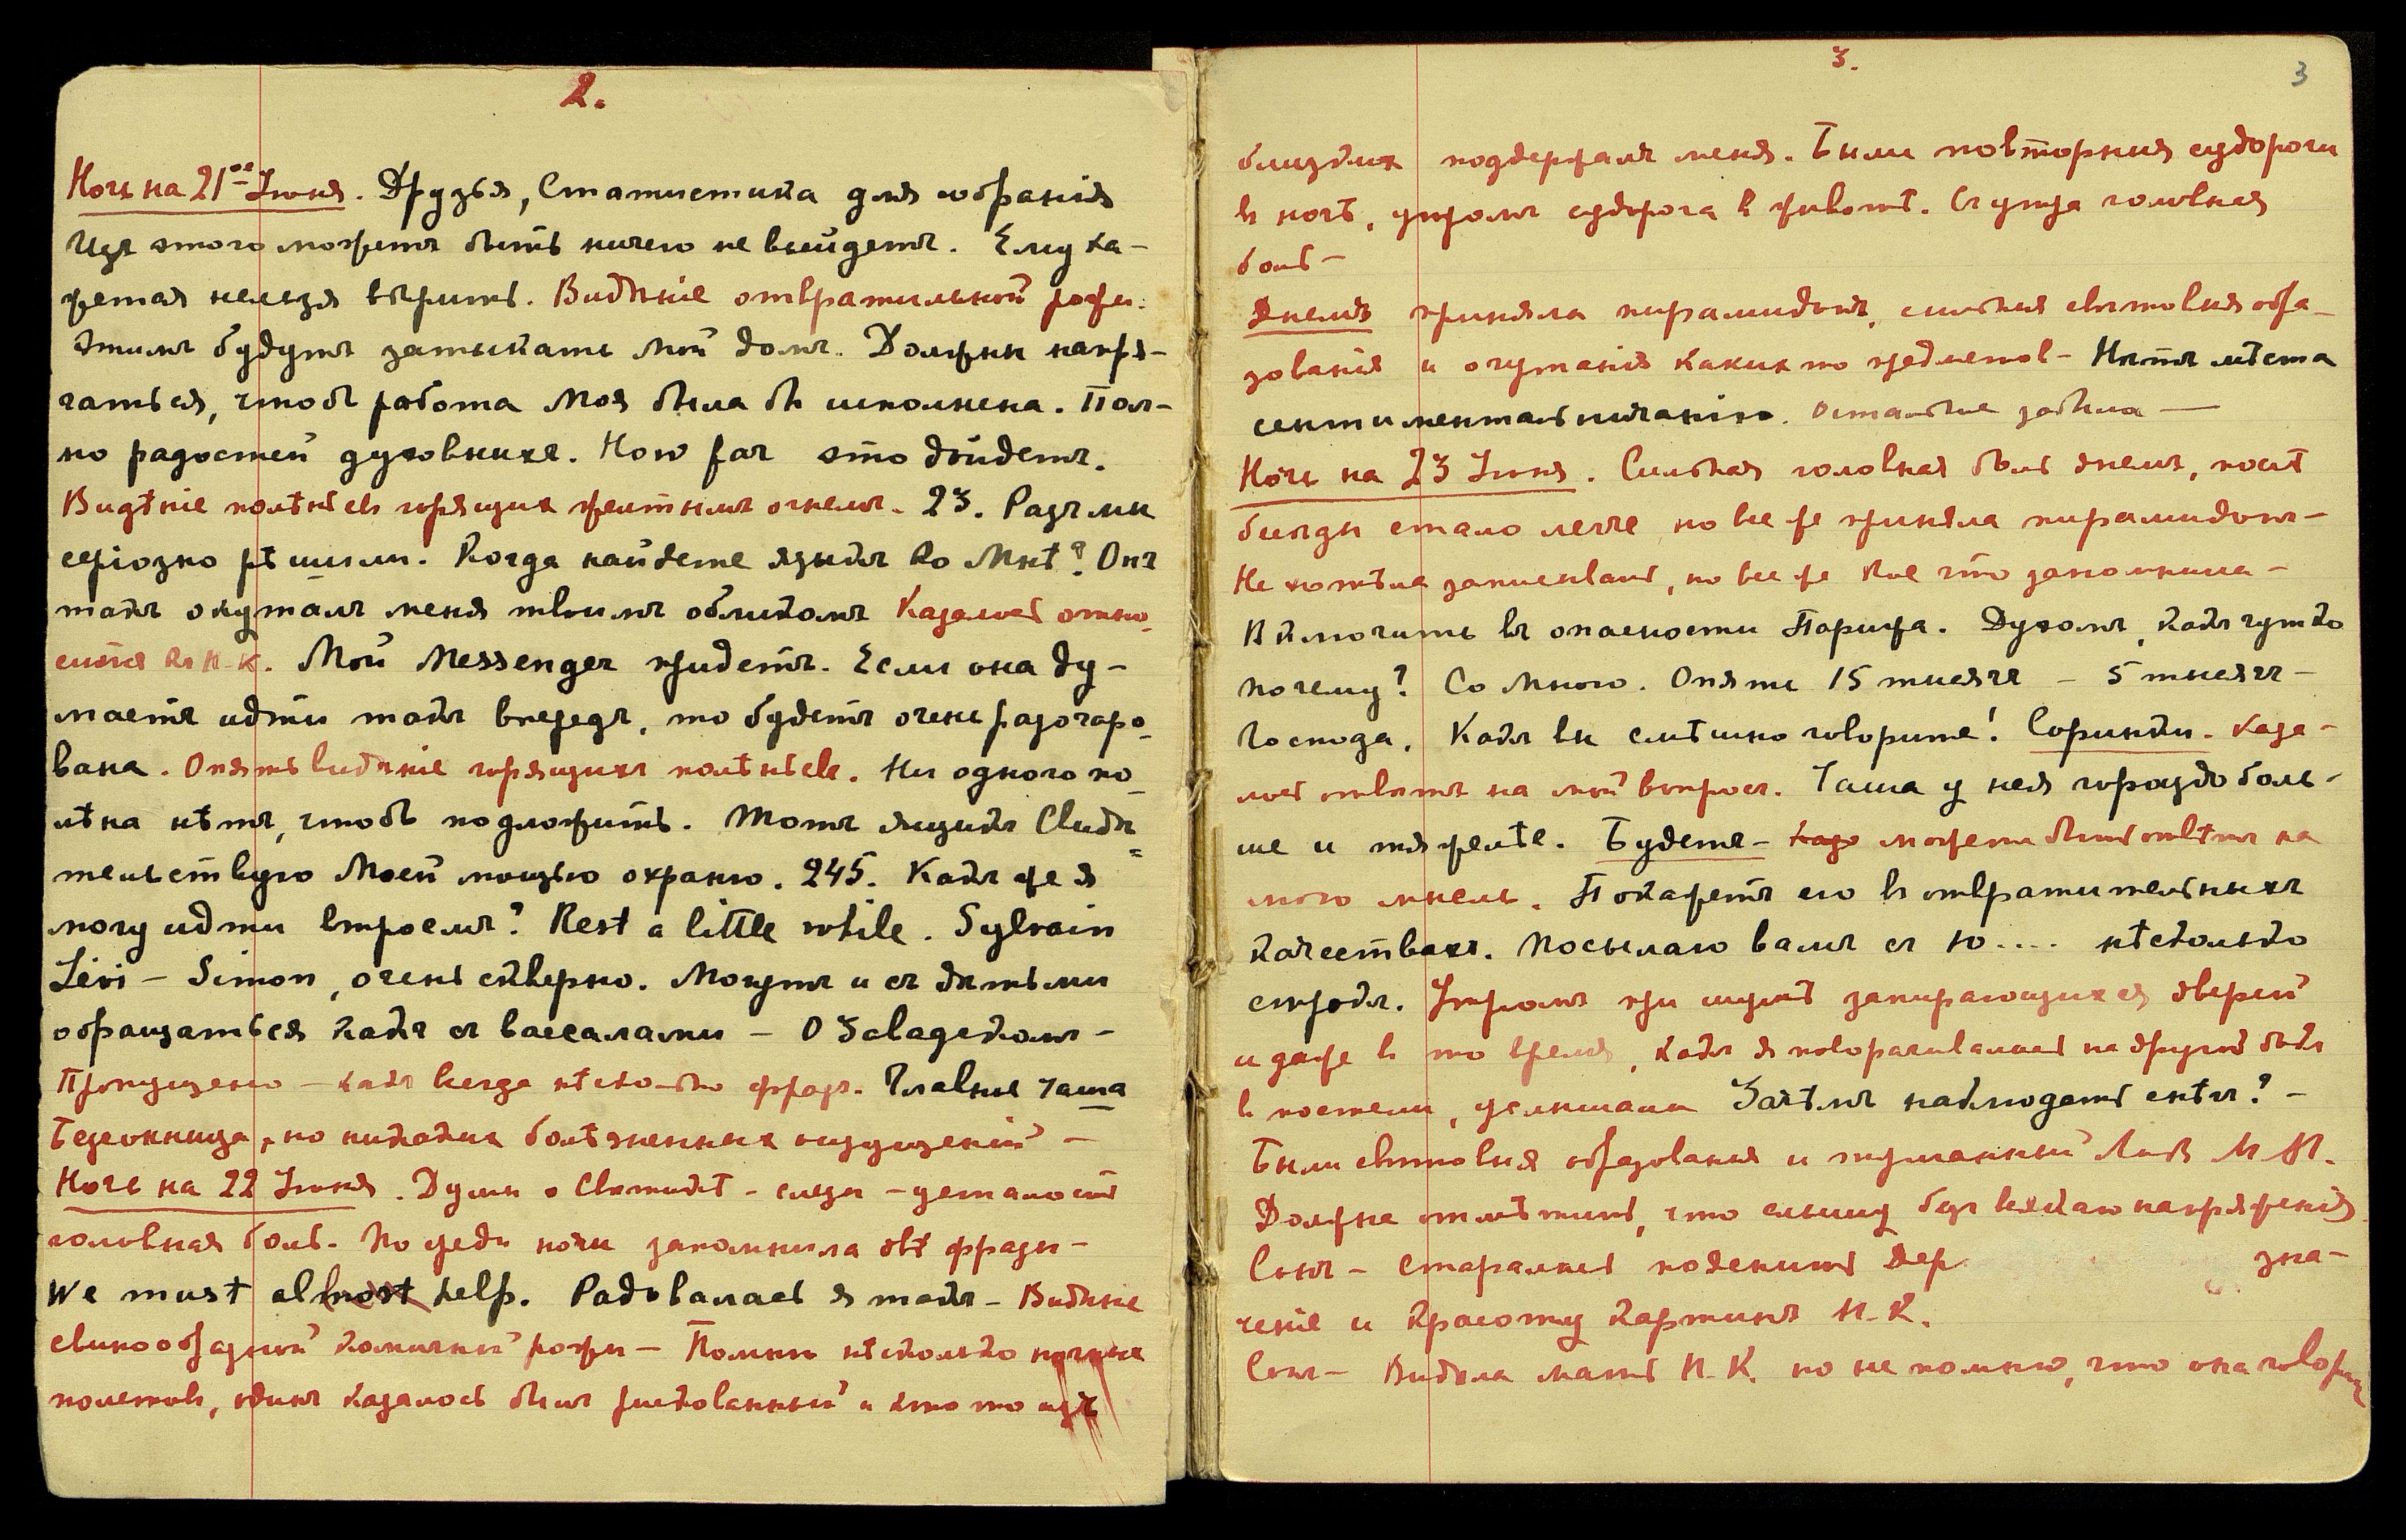 2.
Ночь на 21ое Іюня. Друзья, Статистика для собранія
Изъ этого можетъ быть ничего не выйдетъ. Ему ка-
жется нельзя вѣрить. Видѣніе отвратительной рожи.
Этимъ будутъ затыкать мой домъ. Должны напря-
гаться, чтобъ работа Моя была бы исполнена. Пол-
но радостей духовныхъ. How far это дойдетъ.
Видѣніе полѣньевъ горящихъ желтымъ огнемъ. 23. Развѣ мы
серіозно рѣшили. Когда найдете языкъ ко Мнѣ? Онъ
такъ окуталъ меня твоимъ обликомъ Казалось отно-
сится къ Н.К. Мой Messenger придетъ. Если она ду-
маетъ идти такъ впередъ, то будетъ очень разочаро-
вана. Опять видѣніе горящихъ полѣньевъ. Ни одного по-
лѣна нѣтъ, чтобъ подложить. Тотъ ящикъ Свидѣ-
тельствую Моей мощью охраню. 245. Какъ же я
могу идти втроемъ? Rest a little while. Sylvain
Lévi – Simon, очень скверно. Могутъ и съ дѣтьми
обращаться какъ съ вассалами –
Пропущено – какъ всегда нѣсколько фразъ. Главные чаша
Безсонница, но никакихъ болѣзненныхъ ощущеній –
Ночь на 22 Іюня. Думы о Святикѣ – слезы – усталость
головная боль. По среди ночи запомнила двѣ фразы –
We must almost help. Радовалась я такъ – Видѣніе
свинообразной комичной рожи – Помню нѣсколько ночные
полетовъ, одинъ казалось былъ рискованный и кто то изъ
3.
3
близкихъ поддержалъ меня. Были повторныя судороги
въ ногѣ, утромъ судорога въ животѣ. Съ утра головная
боль –
Днемъ приняла пирамидонъ, сильныя свѣтовыя обра-
зованія и очутанія какихъ то предметовъ – Нѣтъ мѣста
сентиментальничанію. Остальное забыла —
Ночь на 23 Іюня. Сильная головная боль днемъ, послѣ
бисгды стало легче, но все же приняла пирамидонъ –
Не хотѣла записывать, но все же кое что запомнила –
Включить въ опасности Парижа. Духомъ, какъ чутко
почему? Со Мною. Опять 15 тысячъ – 5 тысячъ –
Господа, Какъ вы смѣшно говорите! Соринки. Каза-
лось отвѣтъ на мой вопросъ. Чаша у нея гораздо боль-
ше и тяжелѣе. Будетъ – можетъ быть отвѣтъ на
мою мысль. Покажетъ его въ отвратительныхъ
качествахъ. Посылаю вамъ съ Ю.... нѣсколько
строкъ. Утромъ при шумѣ запирающихся дверей
и даже въ то время, какъ я поворачивалась на другой бокъ
въ постели, услышала Зачѣмъ наблюдать снѣгъ? –
Были свѣтовыя образованія и туманный Ликъ М.М.
Должна отмѣтить, что слышу безъ всякаго напряженія.
Сонъ – Старались подснить Дер зна-
ченіе и красоту картинъ Н.К.
Сонъ – Видѣла мать Н.К. но не помню, что она говори